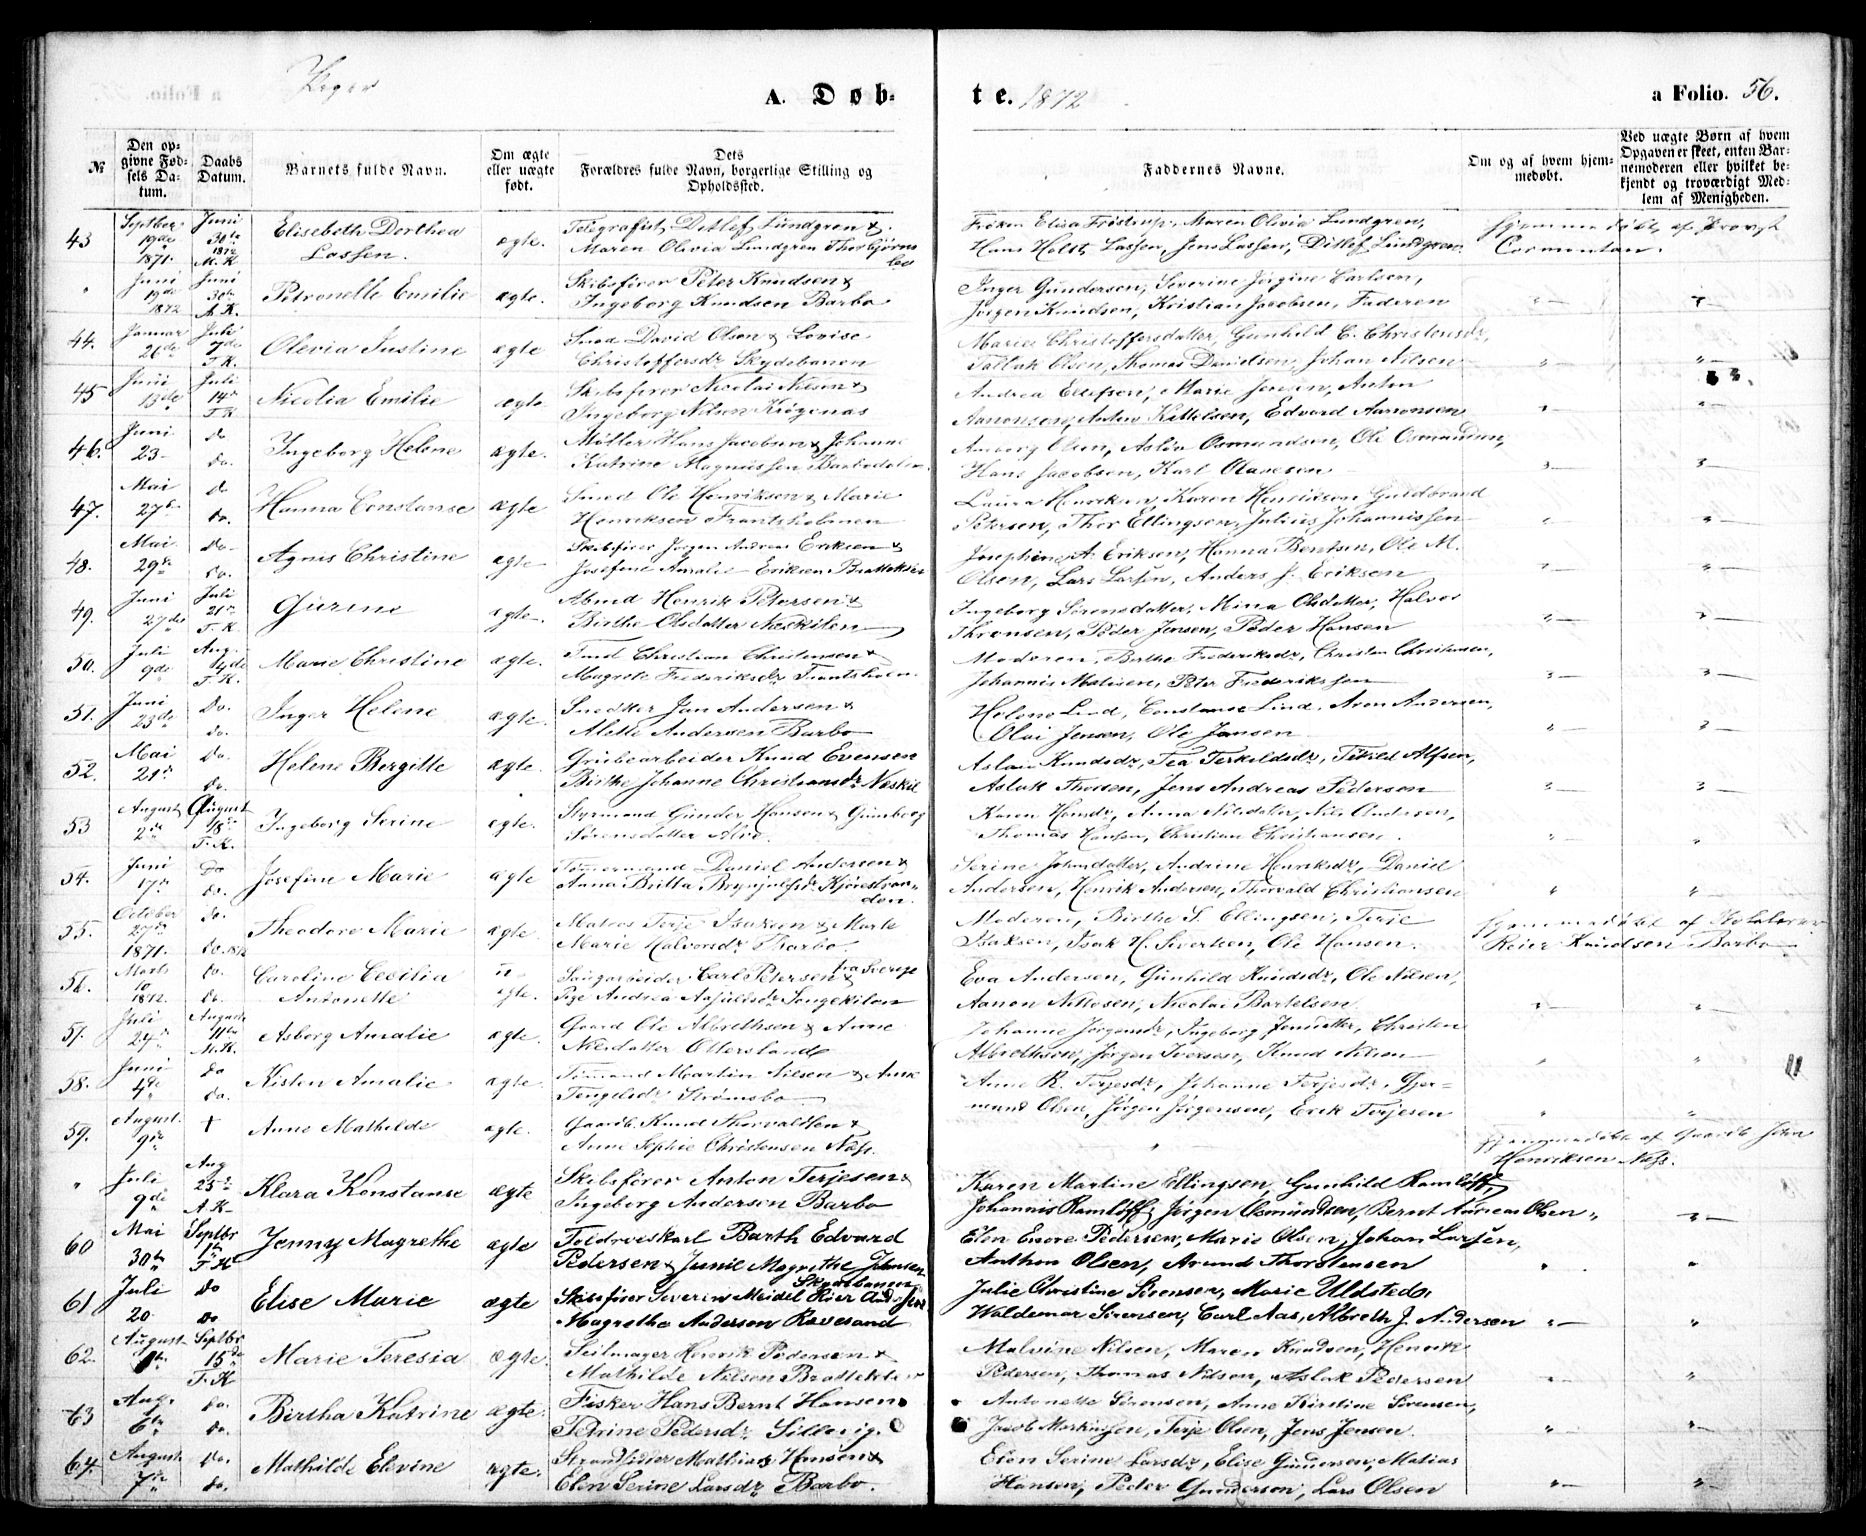 Piger
A. Døb-
te. 1872
a Folio. 56.
№
Den op-
givne Fød-
sels Da-
tum.
Daabs
Datum.
Barnets fulde Navn.
Om ægte
eller uægte
født.
Dets
Forældres fulde Navn, borgerlige Stilling og
Opholdssted.
Faddernes Navne.
Om og af hvem hjem-
medøbt.
Ved uægte Børn af hvem
Opgaven er skeet, enten Bar-
nemoderen eller hvilket be-
kjendt og troværdigt Med-
lem af Menigheden.
43 Septber 19de 1871. Juni 30te 1872 M. K. Elisabeth Dorthea Lassen. ægte. Telegrafist Detlef Lundgren &
Maren Olevia Lundgren
Frøken Elisa Fristrup, Maren Olevia Lundgren,
Hans Holst Lassen, Jens Lassen, Ditlef Lundgren
Hjemmedøbt af Provst
" Juni 19de 1872 Juni 30te A. K. Petronelle Emilie ægte. Skibsfører Peter Knudsen &
Ingeborg Knudsen Barbo
Inger Gundersen, Severine Jørgine Carlsen,
Jørgen Knudsen, Kristian Jacobsen, Faderen
44. Januar 26de Juli 7de T. K. Olevia Justine ægte Smed David Olsen & Lovise
Christoffersdr Skydebanen
Marie Christoffersdatter, Gunhild C. Christensdr,
Tallak Olsen, Thomas Davidsen, Johan Nilsen
45 Juni 13de Juli 14de T. K. Nicolia Emilie ægte Skibsfører Nicolai Nilsen &
Ingeborg Nilsen Krøgenæs
Andrea Ellefsen, Marie Jensen, Anton
Aanonsen, Anton Kittelsen, Edvard Aanonsen
46. Juni 23 do do. Ingeborg Helene ægte. Møller Hans Jacobsen & Johanne
Katrine Magnussen Barbodalen
Olsen, Aslou Osmundsen, Ole Osmundsen,
Hans Jacobsen, Karl Olavesen
47. Mai 27de do do. Hanna Constanse ægte Smed Ole Henriksen & Marie
Henriksen Frantsholmen
Laura Henriksen, Karen Henriksen Guldbrand
Petersen, Thor Ellingsen, Julius Johannissen
48. Mai 29de do do. Agnes Christine ægte Skibsfører Jørgen Andreas Eriksen &
Josefine Amalie Eriksen Brattekleiv
Josephine A. Eriksen, Hanna Bentsen, Ole M.
Olsen, Lars Larsen, Anders J. Eriksen
49. Juni 27de Juli 21de T. K. Gurine ægte. Henrik Petersen &
Birthe Olsdatter Neskilen
Ingeborg Sørensdatter, Mina Olsdatter, Halvor
Thronsen, Peder Jensen, Peder Hansen
50. Juli 9de Aug. 4de T. K. Marie Christine ægte. Christian Christensen &
Magrete Frederiksdr Frantsholm.
Moderen, Birthe Frederiksdr, Christen Christensen,
Johannis Matisen, Peter Frederiksen
51. Juni 23de do. do. Inger Helene ægte. Snedker Jan Andersen &
Alette Andersen Barbo
Helene Lind, Constanse Lind, Aron Andersen,
Olai Jensen, Ole Jansen
52. Mai 21de do. do. Helene Bergitte ægte. Grubearbeider Knud Evensen
Birthe Johanne Christiansdr Neskil
Aslau Knudsdr, Tea Terkeldsdr, Terkild Alfsen,
Aslak Thorsen, Jens Andreas Pedersen
53 August 2de August 18de T. K. Ingeborg Serine ægte. Styrmand Gunder Hansen & Gunborg
Sørensdatter Alve
Karen Hansdr, Anna Nilsdatter, Nils Andersen,
Thomas Hansen, Christian Christiansen.
54. Juni 17de do do. Josefine Marie ægte Tømmermand Daniel Andersen &
Anna Britta Brynjulfsdr Kjørestran-
den.
Serine Johnsdatter, Andrine Henriksdr, Daniel
Andersen, Henrik Andersen, Thorvald Christiansen
55. October 27de 1871. do. do. 1872 Theodore Marie ægte. Matros Terje Isaksen & Marte
Marie Halvorsdr Barbo
Moderen, Birthe S. Ellingsen, Terje
Isaksen, Isak H. Severtsen, Ole Hansen.
Hjemmedøbt af
Reier Knudsen Barbo
56. Marts 10 1872. do. do. Caroline Cecilia
Antonette u- ægte. Carl Petersen fra Sverige &
Pige Andrea Songekilen
Eva Andersen, Gunhild Knudsdr, Ole Nilsen,
Aanon Nilsen, Nicolai Bartelsen
57. Juli 24de August 11te M. K. Asborg Amalie ægte. Gaard Ole Albrethsen & Anne
Nilsdatter Ottersland
Johanne Jørgensdr, Ingeborg Jensdatter, Christen
Albrethsen, Jørgen Iversen, Knud Nilsen
58. Juni 4de do do. Kisten Amalie ægte. Tømmermand Martin Nilsen & Anne
Tengelsdr Strømsbo
Anne R. Terjesdr, Johanne Terjesdr, Gjer-
mund Olsen, Jørgen Jørgensen, Erik Terjesen
59. August. 9de + Anne Mathilde ægte. Gaardb. Knud Thorvaldsen &
Anne Sophie Christensen Næss.
Hjemmedøbt af Gaardb. John
Henriksen Næss.
" Juli 9de Aug 25de A. K. Klara Konstanse ægte Skibsfører Anton Terjesen &
Ingeborg Andersen Barbo
Karen Martine Ellingsen, Gunhild Ramløff,
Johannis Ramløff, Jørgen Osmundsen, Bernt Andreas Olsen
60 Mai 30te Septbr 1te T. K. Jenny Magrethe ægte Barth Edvard
Pedersen & Junie Magrethe Johnsen
Skydebanen
Elen Emore Pedersen, Marie Olsen, Johan Larsen,
Anthon Olsen, Arund Thorstensen
61 Juli 20 do do Elise Marie ægte Skibsfører Severin Meidel Reier Andersen
Magrethe Andersen Revesand
Julie Christine Sørensen, Marie Uldsted,
Waldemar Sørensen, Carl Aas, Albreth J. Andersen
62. August Septbr 15de T. K. Marie Teresia ægte. Seilmager Henrik Pedersen &
Mathilde Nilsen Brattekleiv
Malvine Nilsen, Maren Knudsen, Henrik
Pedersen, Thomas Nilson, Aslak Pedersen
63 Aug. 6te do. do. Birtha Katrine ægte. Fisker Hans Bernt Hansen
Petrine Pedersdr Sildevig.
Antonette Sørensen, Anne Kirstine Sørensen,
Jacob Markussen, Terje Olsen, Jens Jensen.
64. August 7de do. do. Mathilde Elevine ægte. Strandsidder Mathias Hansen &
Elen Serine Larsdr Barbo.
Elen Serine Larsdr, Elise Gundersen, Matias
Hansen, Peder Gunderson, Lars Olsen